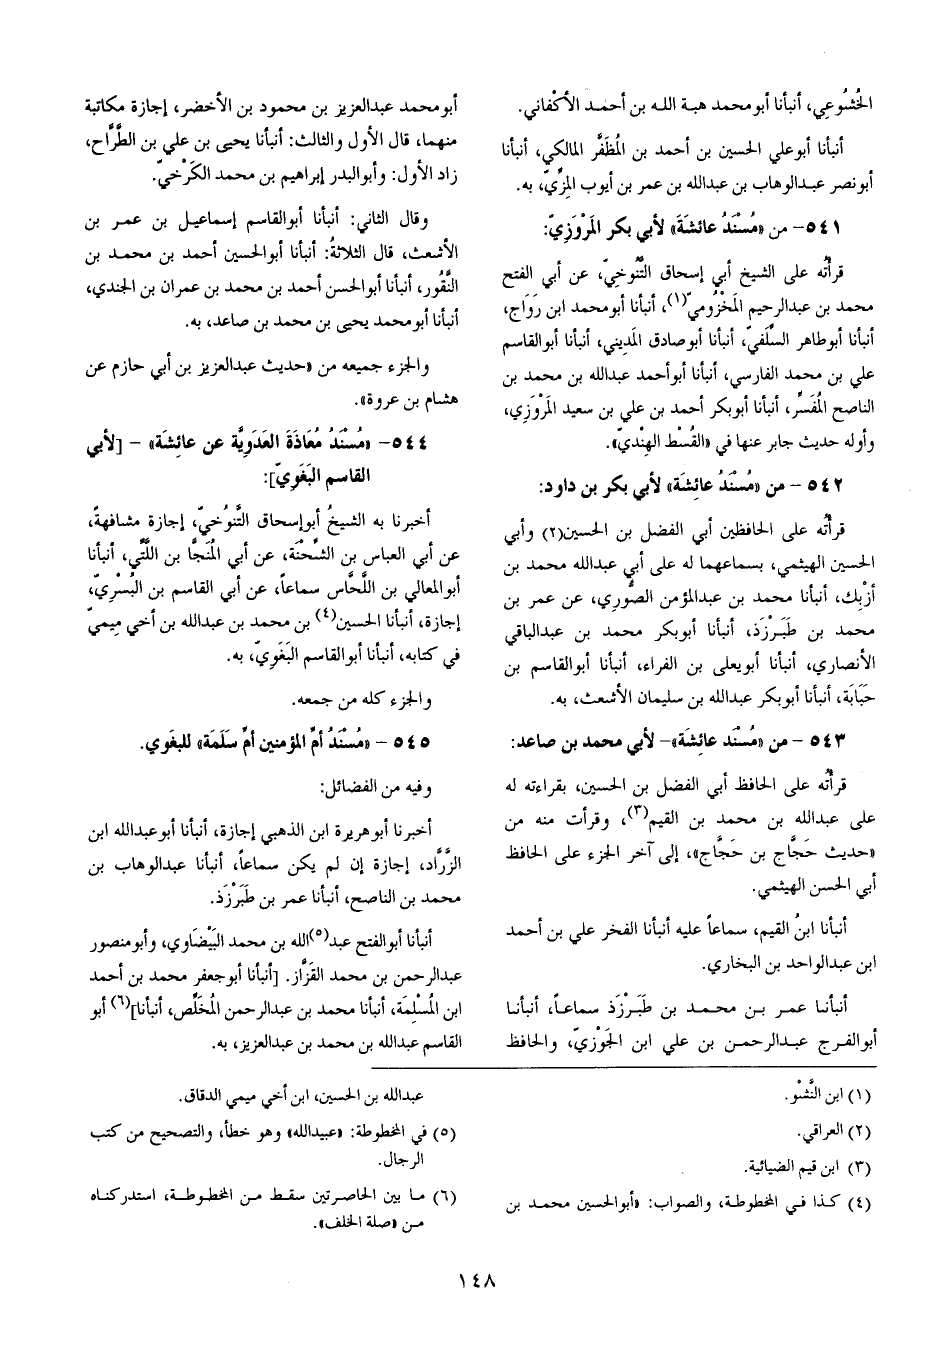 الخُشُوعِي، أنبأنا أبومحمد هبة الله بن أحمد الأكْفاني.
أنبأنا أبوعلي الحسين بن أحمد بن المُظَفَّر المالكي، أنبأنا
أبونصر عبدالوهاب بن عبدالله بن عمر بن أيوب المِزِّيّ، به.
٥٤١– من «مُسْنَدُ عائشَةَ» لأبي بكر المَرْوَزِيّ:
قرأتُه على الشيخ أبي إسحاق التَّنُوخِيّ، عن أبي الفتح
محمد بن عبدالرحيم المَخْزُوميّ(١)، أنبأنا أبومحمد ابن رَوَاج،
أنبأنا أبوطاهر السِّلَفيّ، أنبأنا أبوصادق المَدِيني، أنبأنا أبوالقاسم
علي بن محمد الفارسي، أنبأنا أبوأحمد عبدالله بن محمد بن
الناصح المُفَسِّر، أنبأنا أبوبكر أحمد بن علي بن سعيد المَرْوَزِي،
وأوله حديث جابر عنها في «القُسْط الهِنْديّ».
٥٤٢ – من «مُسْنَدُ عائشَة» لأبي بكر بن داود:
قرأتُه على الحافظين أبي الفضل بن الحسين(٢) وأبي
الحسين الهيثمي، بسماعهما له على أبي عبدالله محمد بن
أزبك، أنبأنا محمد بن عبدالمؤمن الصُّوري، عن عمر بن
محمد بن طَبَرْزَذ، أنبأنا أبوبكر محمد بن عبدالباقي
الأنصاري، أنبأنا أبويعلى بن الفراء، أنبأنا أبوالقاسم بن
حَبَابَة، أنبأنا أبوبكر عبدالله بن سليمان الأشعث، به.
٥٤٣ – من «مُسْنَد عائشَة»– لأبي محمد بن صاعد:
قرأتُه على الحافظ أبي الفضل بن الحسين، بقراءته له
على عبدالله بن محمد بن القيم(٣)، وقرأت منه من
«حديث حَجَّاج بن حَجَّاج»، إلى آخر الجزء على الحافظ
أبي الحسن الهيثمي.
أنبأنا ابنُ القيم، سماعاً عليه أنبأنا الفخر علي بن أحمد
ابن عبدالواحد بن البخاري.
أنبأنا عمر بن محمد بن طَبَرْزَذ سماعاً، أنبأنا
أبوالفرج عبدالرحمن بن علي ابن الجَوْزيّ، والحافظ
أبومحمد عبدالعزيز بن محمود بن الأخضر، إجازة مكاتبة
منهما، قال الأول والثالث: أنبأنا يحيى بن علي بن الطَّرَّاح،
زاد الأول: وأبوالبدر إبراهيم بن محمد الكَرْخيّ.
وقال الثاني: أنبأنا أبوالقاسم إسماعيل بن عمر بن
الأشعث، قال الثلاثةُ: أنبأنا أبوالحسين أحمد بن محمد بن
النَّقُور، أنبأنا أبوالحسن أحمد بن محمد بن عمران بن الجندي،
أنبأنا أبومحمد يحيى بن محمد بن صاعد، به.
والجزء جميعه من «حديث عبدالعزيز بن أبي حازم عن
هشام بن عروة».
٥٤٤– «مُسْنَدُ مُعَاذَةَ العَدَوِيَّة عن عائشَة» – [لأبي
القاسم البَغَويّ]:
أخبرنا به الشيخُ أبوإسحاق التَّنُوخيّ، إجازة مشافهةً،
عن أبي العباس بن الشِّحْنَة، عن أبي المُنَجَّا بن اللَّتِّي، أنبأنا
أبوالمعالي بن اللَّحَّاس سماعاً، عن أبي القاسم بن البُسْريّ،
إجازة، أنبأنا الحسين(٤) بن محمد بن عبدالله بن أخي مِيمِيّ
في كتابه، أنبأنا أبوالقاسم البَغَويّ، به.
والجزء كله من جمعه.
٥٤٥ – «مُسْنَدُ أمِّ المؤمنين أمِّ سَلَمَة» للبغوي.
وفيه من الفضائل:
أخبرنا أبوهريرة ابن الذهبي إجازة، أنبأنا أبوعبدالله ابن
الزَّرَّاد، إجازة إن لم يكن سماعاً، أنبأنا عبدالوهاب بن
محمد بن الناصح، أنبأنا عمر بن طَبَرْزَذ.
أنبأنا أبوالفتح عبد(٥)الله بن محمد البَيْضَاوي، وأبومنصور
عبدالرحمن بن محمد القَزَّاز. [أنبأنا أبوجعفر محمد بن أحمد
ابن المُسْلِمَة، أنبأنا محمد بن عبدالرحمن المُخَلِّص، أنبأنا](٦) أبو
القاسم عبدالله بن محمد بن عبدالعزيز، به.
(١) ابن النَّشْو.
(٢) العراقي.
(٣) ابن قيم الضيائية.
(٤) كذا في المخطوطة، والصواب: «أبوالحسين محمد بن
عبدالله بن الحسين، ابن أخي ميمي الدقاق.
(٥) في المخطوطة: «عبيدالله» وهو خطأ، والتصحيح من كتب
الرجال.
(٦) ما بين الحاصرتين سقط من المخطوطة، استدركناه
من «صلة الخلف».
١٤٨